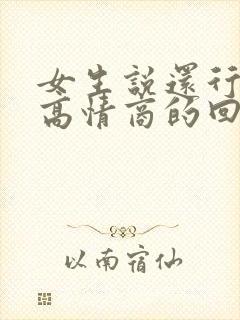 女生説還行
高情商的回
以南宿仙